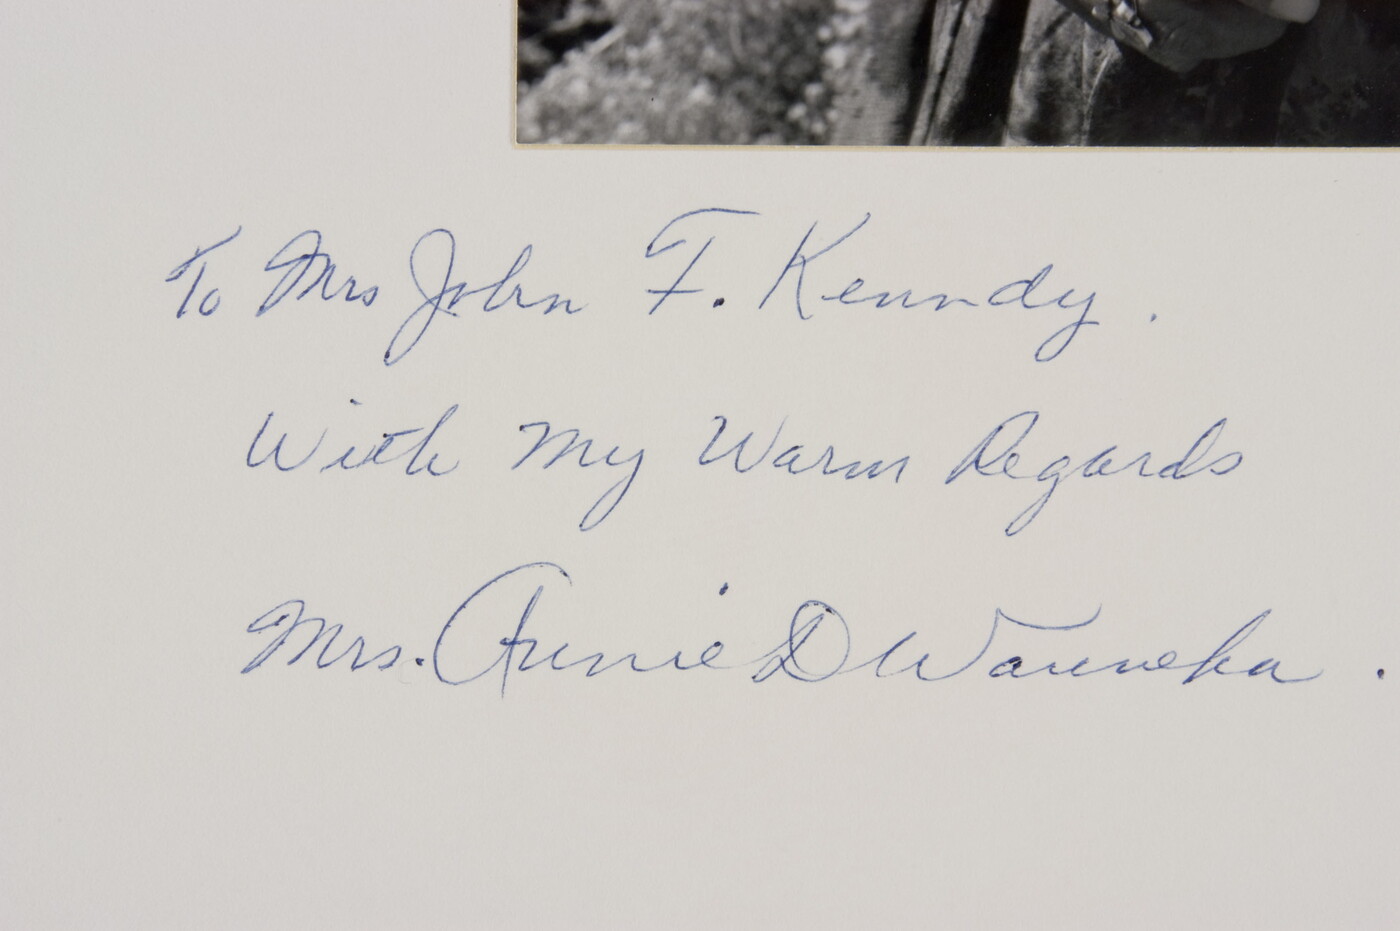 To Mrs John F. Kenndy.
With My Warm Regards
Mrs. Annie D Wauneka.